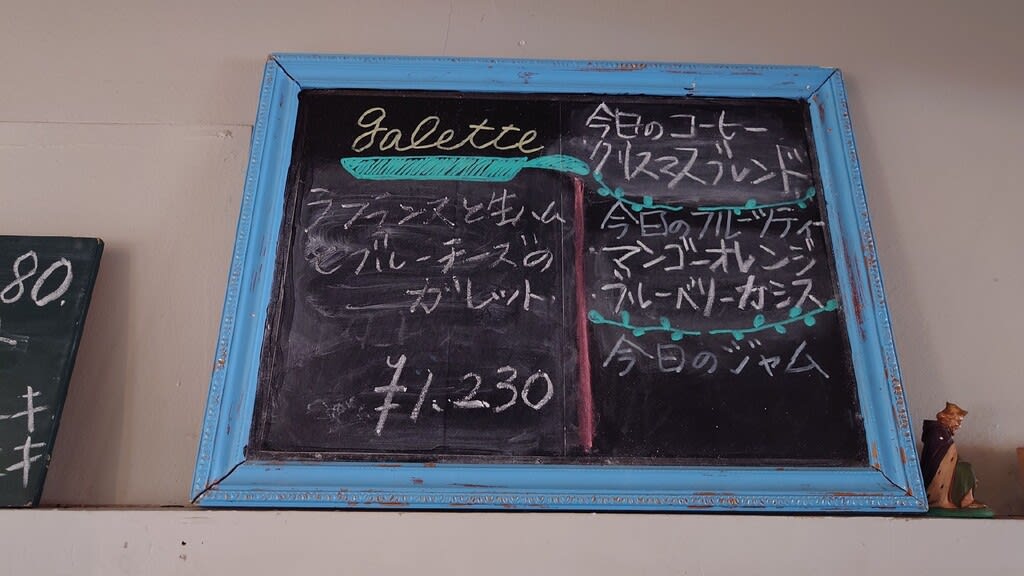 galette
ラフランスと生ハム
とブルーチーズの
ガレット
¥1.230
今日のコーヒー
クリスマスブレンド
今日のフルーツティー
・マンゴーオレンジ
・ブルーベリーカシス
今日のジャム
80.
キ
キ